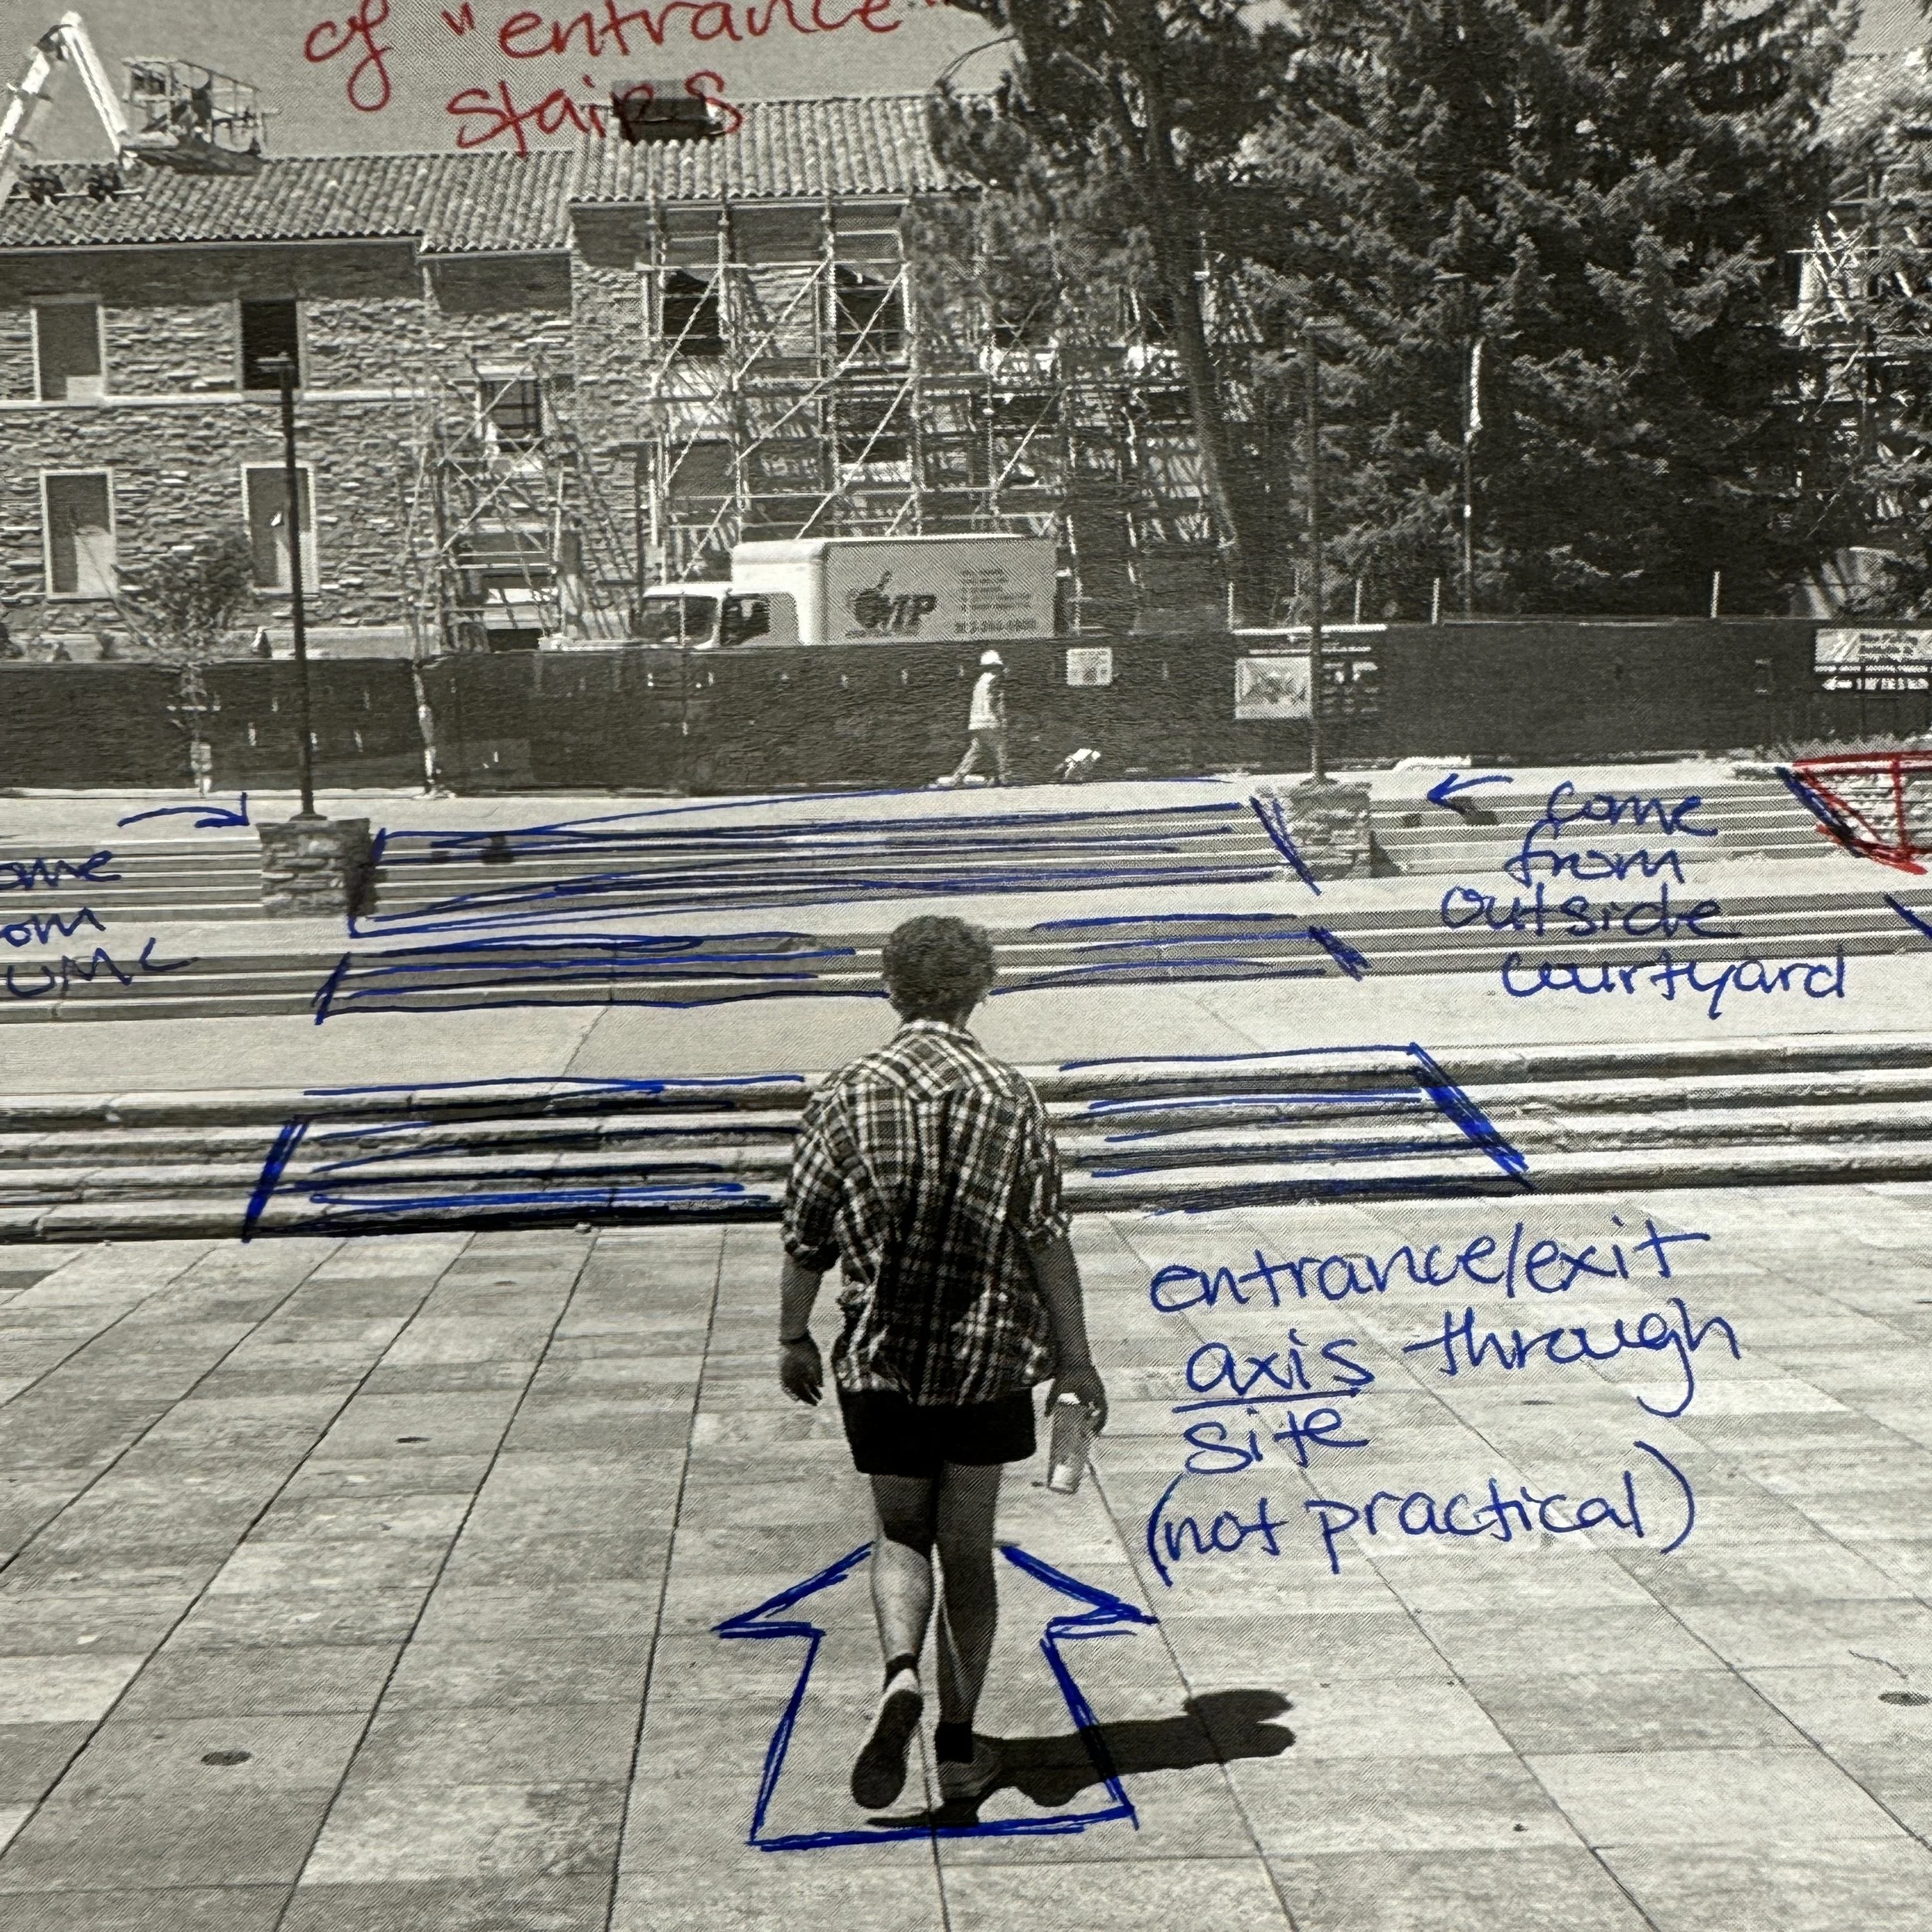 of "entrance"
stairs
ATP
come
from
outside
courtyard
UMC
entrance/exit
axis through
site
(not practical)